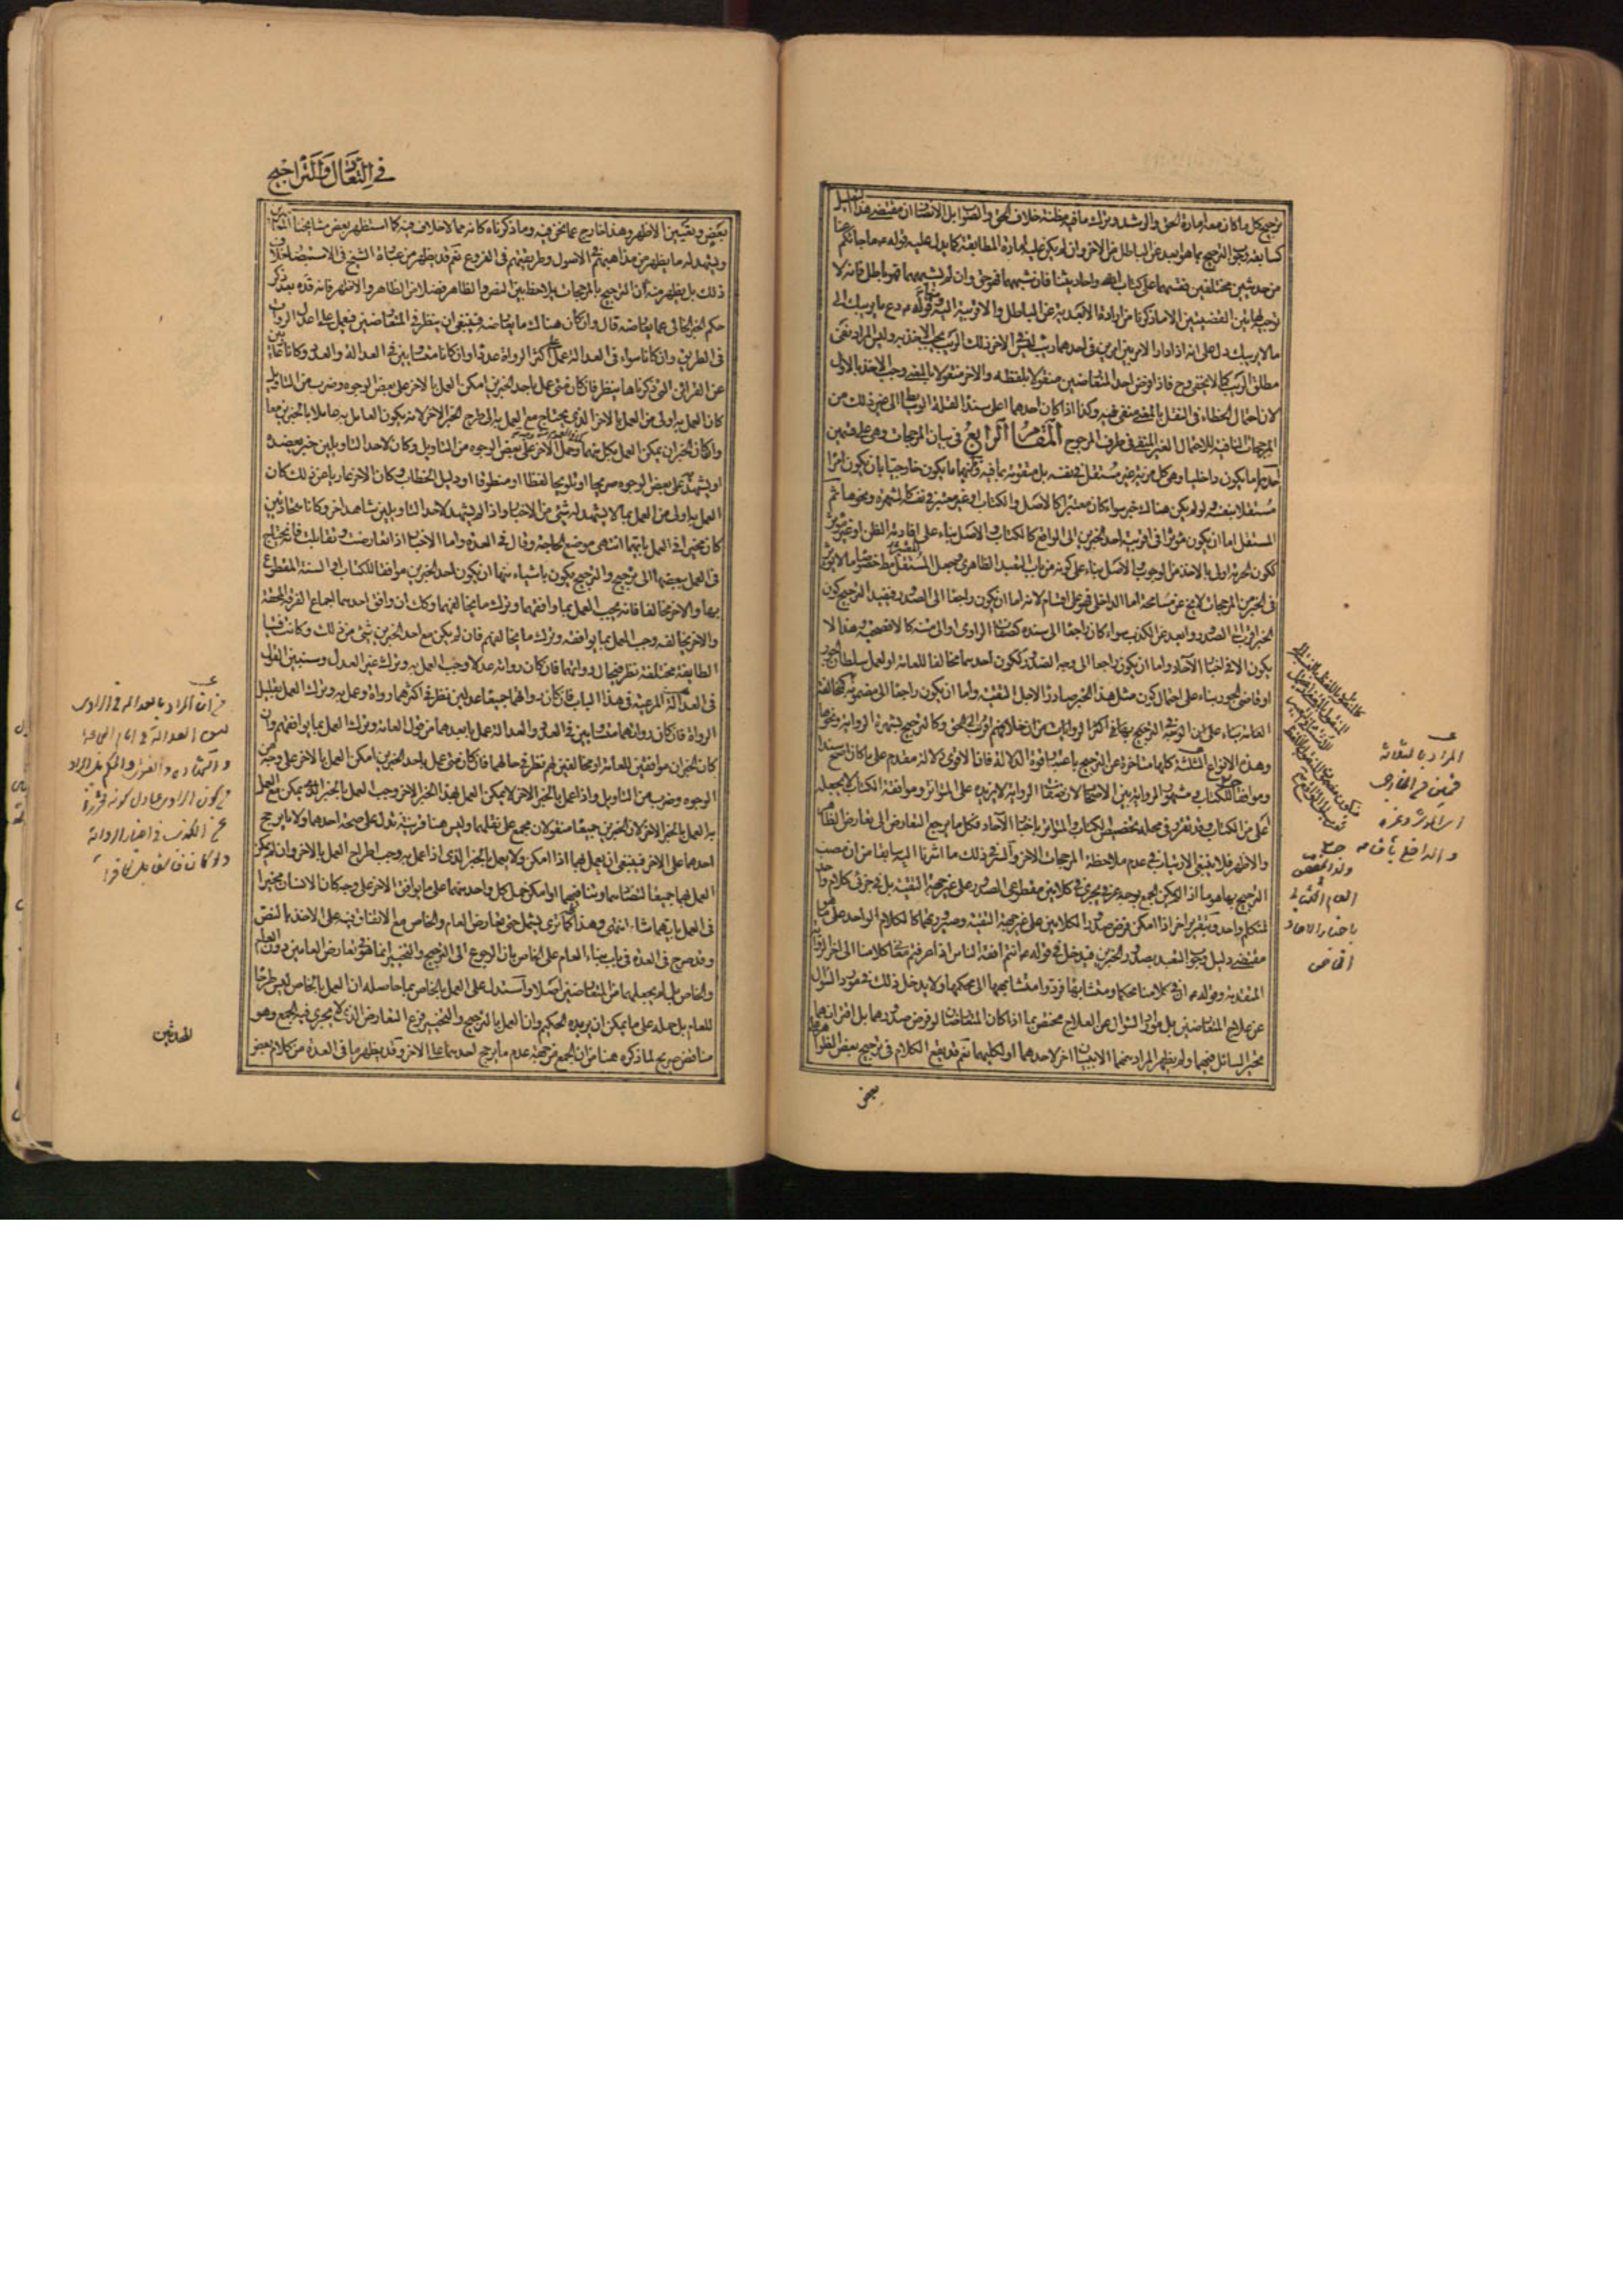 ترجيح كل ما كان معه امارة الحق والرشد وترك ما فيه مظنة خلاف الحق والصواب بل الانصاف ان مقتضى هذا التعليل
كسابقه وجوب الترجيح بما هو ابعد عن الباطل من الاخر وان لم يكن عليه امارة المطابقة كما يدل عليه قوله ع ما جائكم عنا
من حديثين مختلفين فقسهما على كتاب الله واحاديثنا فان اشبههما فهو حق وان لم يشبههما فهو باطل فانه لا
توجيه لهاتين القضيتين الا ما ذكرنا من ارادة الابعدية عن الباطل والاقربية اليه ومنها قوله ع دع ما يريبك الى
ما لا يريبك دل على انه اذا دار الامر بين امرين فى احدهما ريب ليس فى الاخر ذلك الريب يجب الاخذ به وليس المراد نفى
مطلق الريب كما لا يخفى وح فاذا فرض احد المتعارضين منقولا بلفظه والاخر منقولا بالمعنى وجب الاخذ بالاول
لان احتمال الخطاء فى النقل بالمعنى منفى فيه وكذا اذا كان احدهما اعلى سندا لقلة الوسائط الى غير ذلك من
المرجحات النافية للاحتمال الغير المنفى فى طرف المرجوح المقام الرابع فى بيان المرجحات وهى على قسمين
احدهما ما يكون داخليا وهى كل مزية غير مستقل فى نفسه بل متقومة بما فيه وثانيهما ما يكون خارجيا بان يكون امرا
مستقلا بنفسه ولو لم يكن هناك خبر سواء كان معتبرا كالاصل والكتاب او غير معتبر فى نفسه كالشهرة ونحوها ثم
المستقل اما ان يكون مؤثرا فى اقربية احد الخبرين الى الواقع كالكتاب والاصل بناء على افادته الظن او غير مؤثر
ككون الحرمة اولى بالاخذ من الوجوب والاصل بناء على كونه من باب التعبد الظاهرى وجعل المستقل مطلقا خصوصا ما لا يؤثر
فى الخبر من المرجحات لا يخ عن مسامحة اما الداخلى فهو على اقسام لانه اما ان يكون راجعا الى الصدور فيفيد الترجيح كون
الخبر اقرب الى الصدور وابعد عن الكذب سواء كان راجعا الى سنده كصفات الراوى او الى متنه كالافصحية وهذا لا
يكون الا فى اخبار الآحاد واما ان يكون راجعا الى وجه الصدور ككون احدهما مخالفا للعامة او لعمل سلطان الجور
او قاضى الجور بناء على احتمال كون مثل هذا الخبر صادرا لاجل التقية واما ان يكون راجعا الى مضمونه كمخالفة
العامة بناء على ان الوجه فى الترجيح بها ما فى اكثر الروايات من ان خلافهم اقرب الى الحق وكالترجيح بشهرة الرواية ونحوها
وهذه الانواع الثلثة كلها متاخرة عن الترجيح باعتبار قوة الدلالة فان الاقوى دلالة مقدم على ما كان اصح سندا
وموافقا للكتاب ومشهور الرواية بين الاصحاب لان صفات الرواية لا تزيده على المتواتر وموافقة الكتاب لا تجعله
اعلى من الكتاب وقد تقرر فى محله تخصيص الكتاب والمتواتر باخبار الآحاد فكل ما يرجع التعارض الى تعارض الظاهر
والاظهر فلا ينبغى الارتياب فى عدم ملاحظة المرجحات الاخر والسر فى ذلك ما اشرنا اليه سابقا من ان مصب
الترجيح بها هو ما اذا لم يمكن الجمع بوجه عرفى يجرى فى كلامين مقطوعى الصدور على غير جهة التقية بل فى جزئى كلام واحد
لمتكلم واحد وبتقرير اخر اذا امكن فرض صدور الكلامين على غير جهة التقية وصيرورتهما كالكلام الواحد على ما هو
مقتضى دليل وجوب التعبد بصدور الخبرين فيدخل فى قوله ع انتم افقه الناس اذا عرفتم معانى كلامنا الى اخر الرواية
المتقدمة وقوله ع ان فى كلامنا محكما ومتشابها فردوا متشابهها الى محكمها ولا يدخل ذلك فى مورد السؤال
عن علاج المتعارضين بل مورد السؤال عن العلاج مختص بما اذا كان المتعارضان لو فرض صدورهما بل اقترانهما
تحير السائل فيهما ولم يظهر المراد منهما الا ببيان اخر لاحدهما او لكليهما نعم قد يقع الكلام فى ترجيح بعض الظواهر على
بعض
المراد بالثلثة
حـ
ولذا يخصص
العام الكتابى
باخبار الاحاد
الخاص
فى التعادل والتراجيح
بعض وتعيين الاظهر وهذا خارج عما نحن فيه وما ذكرناه كانه مما لا خلاف فيه كما استظهره بعض مشايخنا المعاصرين
ويشهد له ما يظهر من مذاهبهم فى الاصول وطريقتهم فى الفروع نعم قد يظهر من عبارة الشيخ فى الاستبصار خلاف
ذلك بل يظهر منه ان الترجيح بالمرجحات يلاحظ بين النص والظاهر فضلا عن الظاهر والاظهر فانه قده بعد ذكر
حكم الخبر الخالى عما يعارضه قال وان كان هناك ما يعارضه فينبغى ان ينظر فى المتعارضين فيعمل على اعدل الرواة
فى الطريق وان كانا سواء فى العدالة عمل على اكثر الرواة عددا وان كانا متساويين فى العدالة والعدد وكانا عاريين
عن القرائن التى ذكرناها ينظر فان كان متى عمل باحد الخبرين امكن العمل بالاخر على بعض الوجوه وضرب من التاويل
كان العمل به اولى من العمل بالاخر الذى يحتاج مع العمل به الى طرح الخبر الاخر لانه يكون العامل به عاملا بالخبرين معا
وان كان الخبران يمكن العمل بكل منهما وحمل الاخر على بعض الوجوه من التاويل وكان لاحد التاويلين خبر يعضده
او يشهد به على بعض الوجوه صريحا او تلويحا لفظا او منطوقا او دليل الخطاب وكان الاخر عاريا عن ذلك كان
العمل به اولى من العمل بما لا يشهد له شئ من الاخبار واذا لم يشهد لاحد التاويلين شاهد اخر وكانا متحاذيين
كان مخيرا فى العمل بايهما انتهى موضع الحاجة وقال فى العدة واما الاخبار اذا تعارضت وتقابلت فانه يحتاج
فى العمل ببعضها الى ترجيح والترجيح يكون باشياء منها ان يكون احد الخبرين موافقا للكتاب او السنة المقطوع
بها والاخر مخالفا فانه يجب العمل بما وافقهما وترك ما يخالفهما وكك ان وافق احدهما اجماع الفرقة المحقة
والاخر يخالفه وجب العمل بما يوافقه وترك ما يخالفهم فان لم يكن مع احد الخبرين شئ من ذلك وكانت فتيا
الطايفة مختلفة نظر فى حال رواتهما فان كان رواته عدلا وجب العمل به وترك غير العدل وسنبين القول
فى العدالة المرعية فى هذا الباب فان كان رواتهما جميعا عدلين نظر فى اكثرهما رواة وعمل به وترك العمل بقليل
الرواة فان كان رواتهما متساويين فى العدد والعدالة عمل بابعدهما من قول العامة وترك العمل بما يوافقهم وان
كان الخبران موافقين للعامة او مخالفين لهم نظر فى حالهما فان كان متى عمل باحد الخبرين امكن العمل بالاخر على وجه من
الوجوه وضرب من التاويل واذا عمل بالخبر الاخر لا يمكن العمل بهذا الخبر الاخر وجب العمل بالخبر الذى يمكن مع العمل
به العمل بالخبر الاخر لان الخبرين جميعا منقولان مجمع على نقلهما وليس هنا قرينة تدل على صحة احدهما ولا ما يرجح
احدهما على الاخر فينبغى ان يعمل بهما اذا امكن ولا يعمل بالخبر الذى اذا عمل به وجب اطراح العمل بالاخر وان لم يمكن
العمل بهما جميعا لتضادهما وتنافيهما او امكن حمل كل واحد منهما على ما يوافق الاخر على وجه كان الانسان مخيرا
فى العمل بايهما شاء انتهى وهذا كما ترى يشمل حتى تعارض العام والخاص مع الاتفاق فيه على الاخذ بالنص
وقد صرح فى العدة فى باب بناء العام على الخاص بان الرجوع الى الترجيح والتخيير انما هو فى تعارض العامين دون العام
والخاص بل لم يجعلهما من المتعارضين اصلا واستدل على العمل بالخاص بما حاصله ان العمل بالخاص ليس طرحا
للعام بل حمله على ما يمكن ان يريده الحكيم وان العمل بالترجيح والتخيير فرع التعارض الذى لا يجرى فيه الجمع وهو
مناقض صريح لما ذكره هنا من ان الجمع من جهة عدم ما يرجح احدهما على الاخر وقد يظهر ما فى العدة من كلام بعض
المحدثين